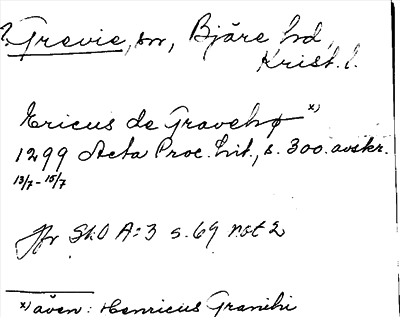 ? Grevie, sn, Bjäre hd,
Krist. l.
Ericus de Gravehø x)
1299 Acta Proc. Lit., s. 300. avskr.
13/7-15/7
Jfr SkO A:3 s. 69 not 2
x) även: Henricus Granihi